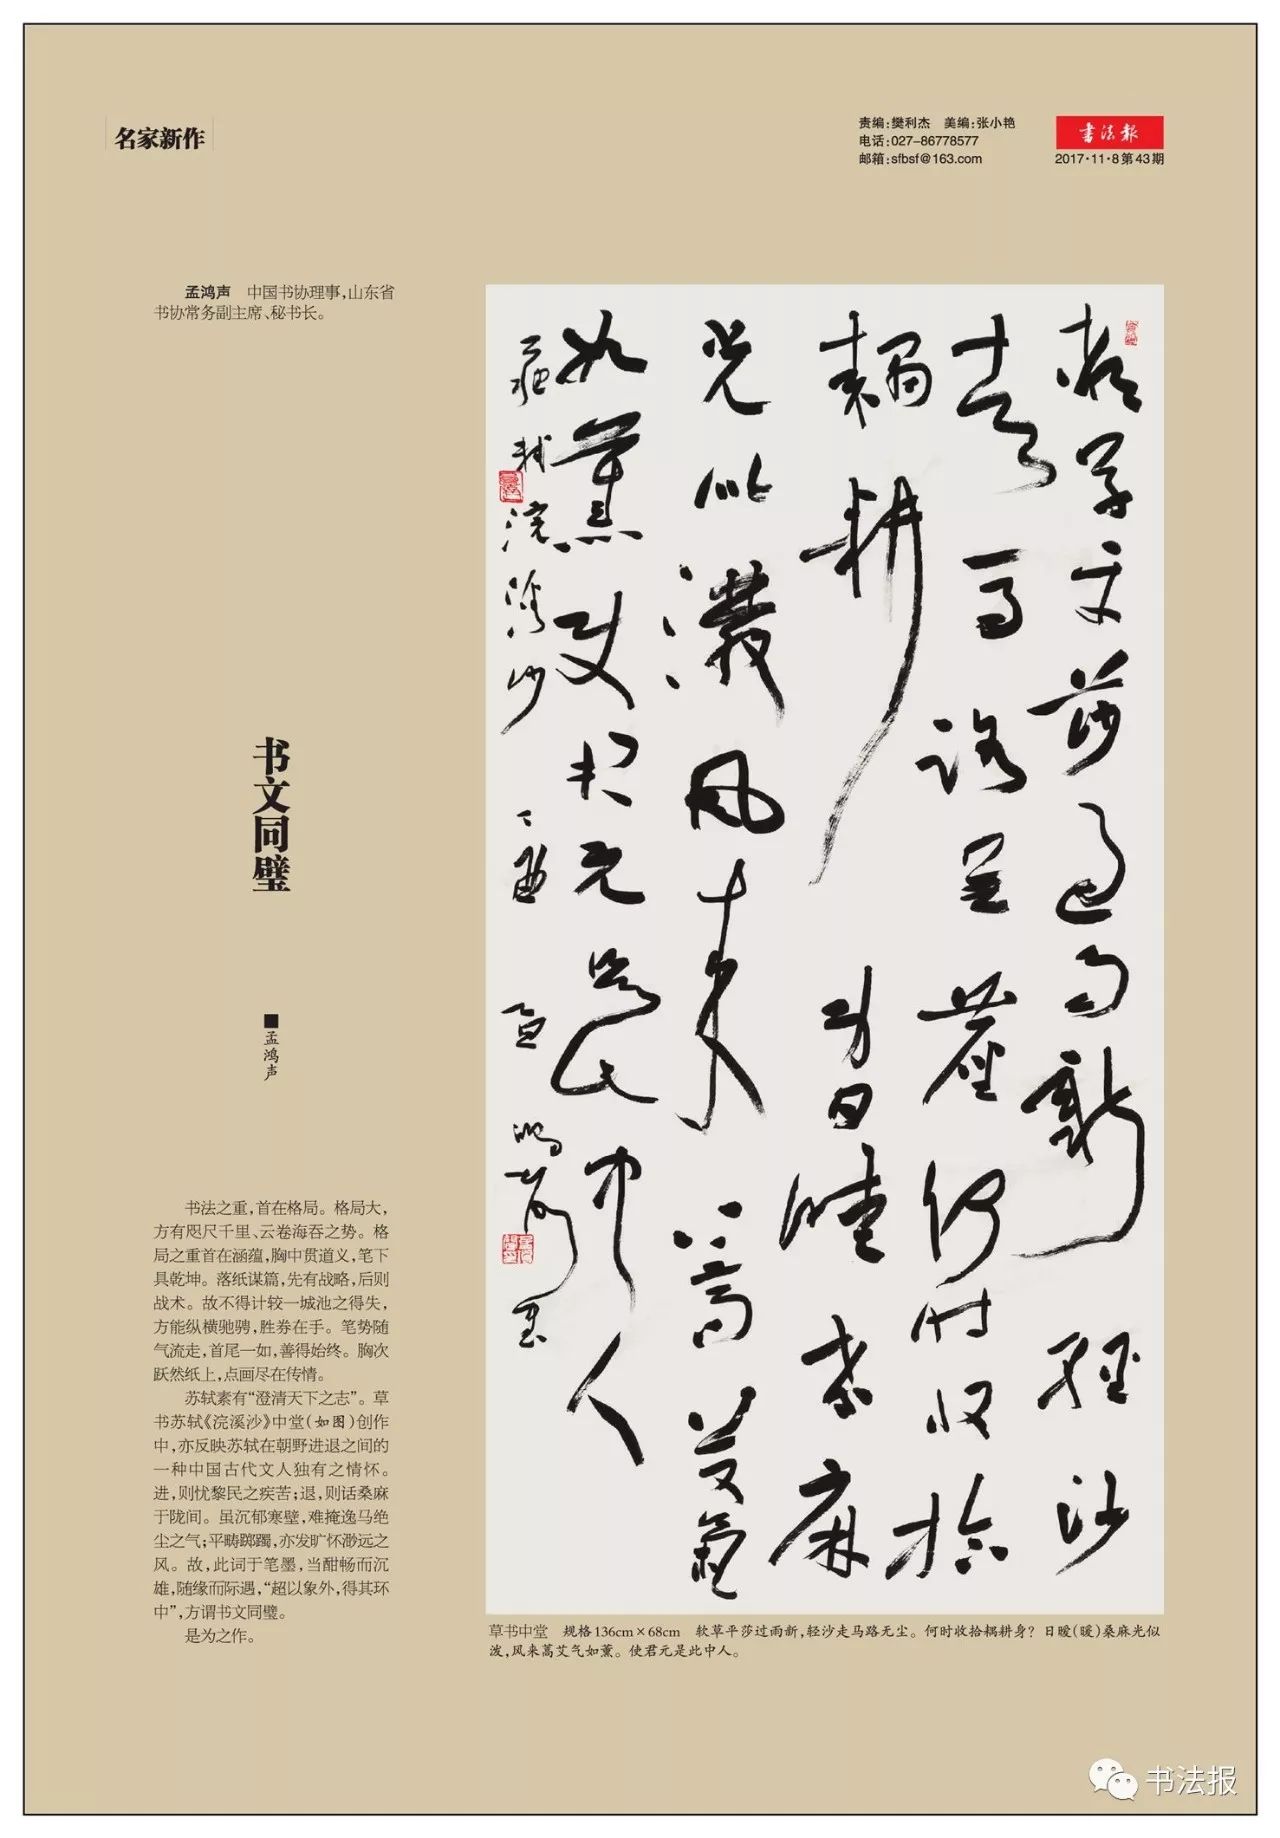 名家新作
责编:樊利杰　美编:张小艳
电话:027-86778577
邮箱:sfbsf@163.com
書法報
2017·11·8第43期
孟鸿声　中国书协理事,山东省
书协常务副主席、秘书长。
书文同璧
■孟鸿声
书法之重,首在格局。格局大,
方有咫尺千里、云卷海吞之势。格
局之重首在涵蕴,胸中贯道义,笔下
具乾坤。落纸谋篇,先有战略,后则
战术。故不得计较一城池之得失,
方能纵横驰骋,胜券在手。笔势随
气流走,首尾一如,善得始终。胸次
跃然纸上,点画尽在传情。
苏轼素有“澄清天下之志”。草
书苏轼《浣溪沙》中堂(如图)创作
中,亦反映苏轼在朝野进退之间的
一种中国古代文人独有之情怀。
进,则忧黎民之疾苦;退,则话桑麻
于陇间。虽沉郁寒壁,难掩逸马绝
尘之气;平畴踯躅,亦发旷怀渺远之
风。故,此词于笔墨,当酣畅而沉
雄,随缘而际遇,“超以象外,得其环
中”,方谓书文同璧。
是为之作。
软草平莎过雨新轻沙
走马路无尘何时收拾
耦耕身日暖桑麻
光似潑风来蒿艾氣
如薰使君元是此中人
苏轼浣溪沙　丁酉　鸿声书
草书中堂　规格136cm×68cm　软草平莎过雨新,轻沙走马路无尘。何时收拾耦耕身？日暧(暖)桑麻光似
泼,风来蒿艾气如薰。使君元是此中人。
书法报